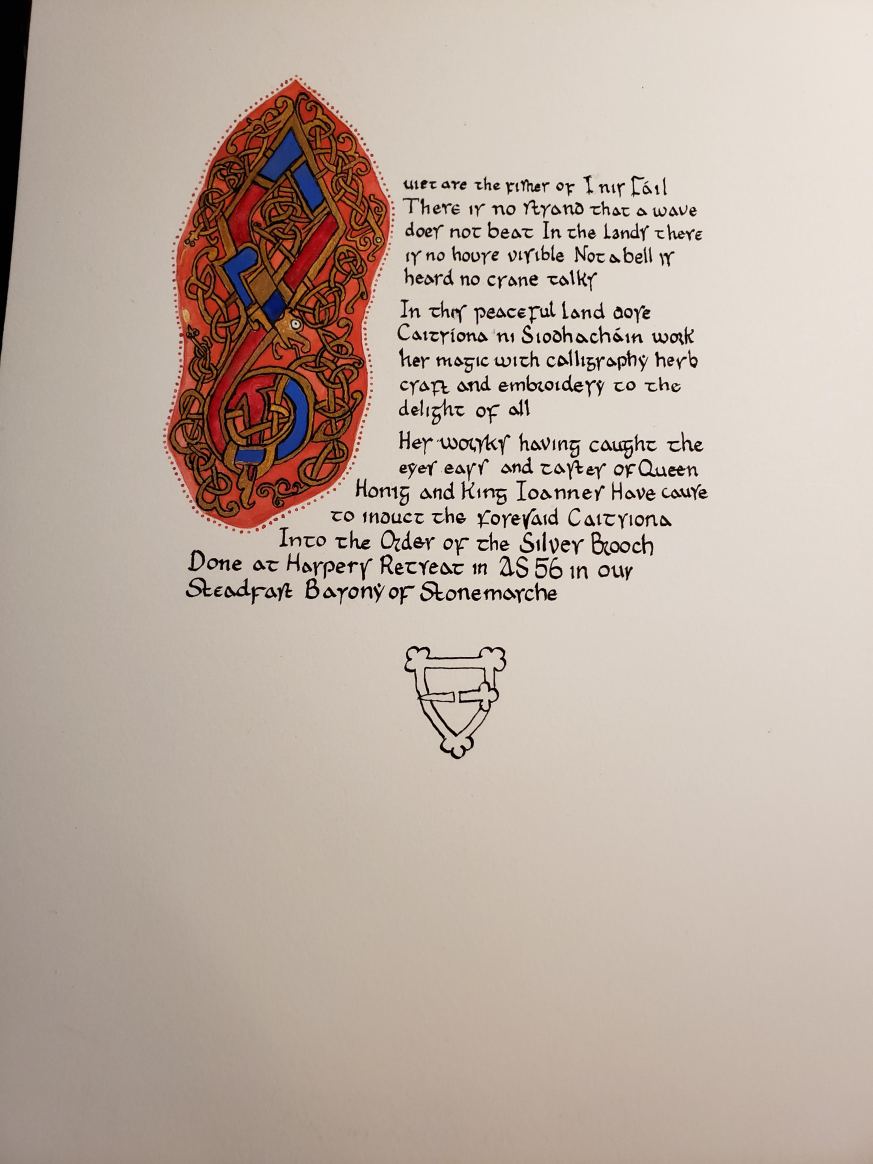 Quiet are the times of Inis Fáil
There is no strand that a wave
does not beat In the lands there
is no house visible Not a bell is
heard no crane talks
In this peaceful land does
Caitríona ni Siodhacháin work
her magic with calligraphy herb
craft and embroidery to the
delight of all
Her works having caught the
eyes ears and tastes of Queen
Honig and King Ioannes Have cause
to induct the foresaid Caitriona
Into the Order of the Silver Brooch
Done at Harpers Retreat in AS 56 in our
Steadfast Barony of Stonemarche